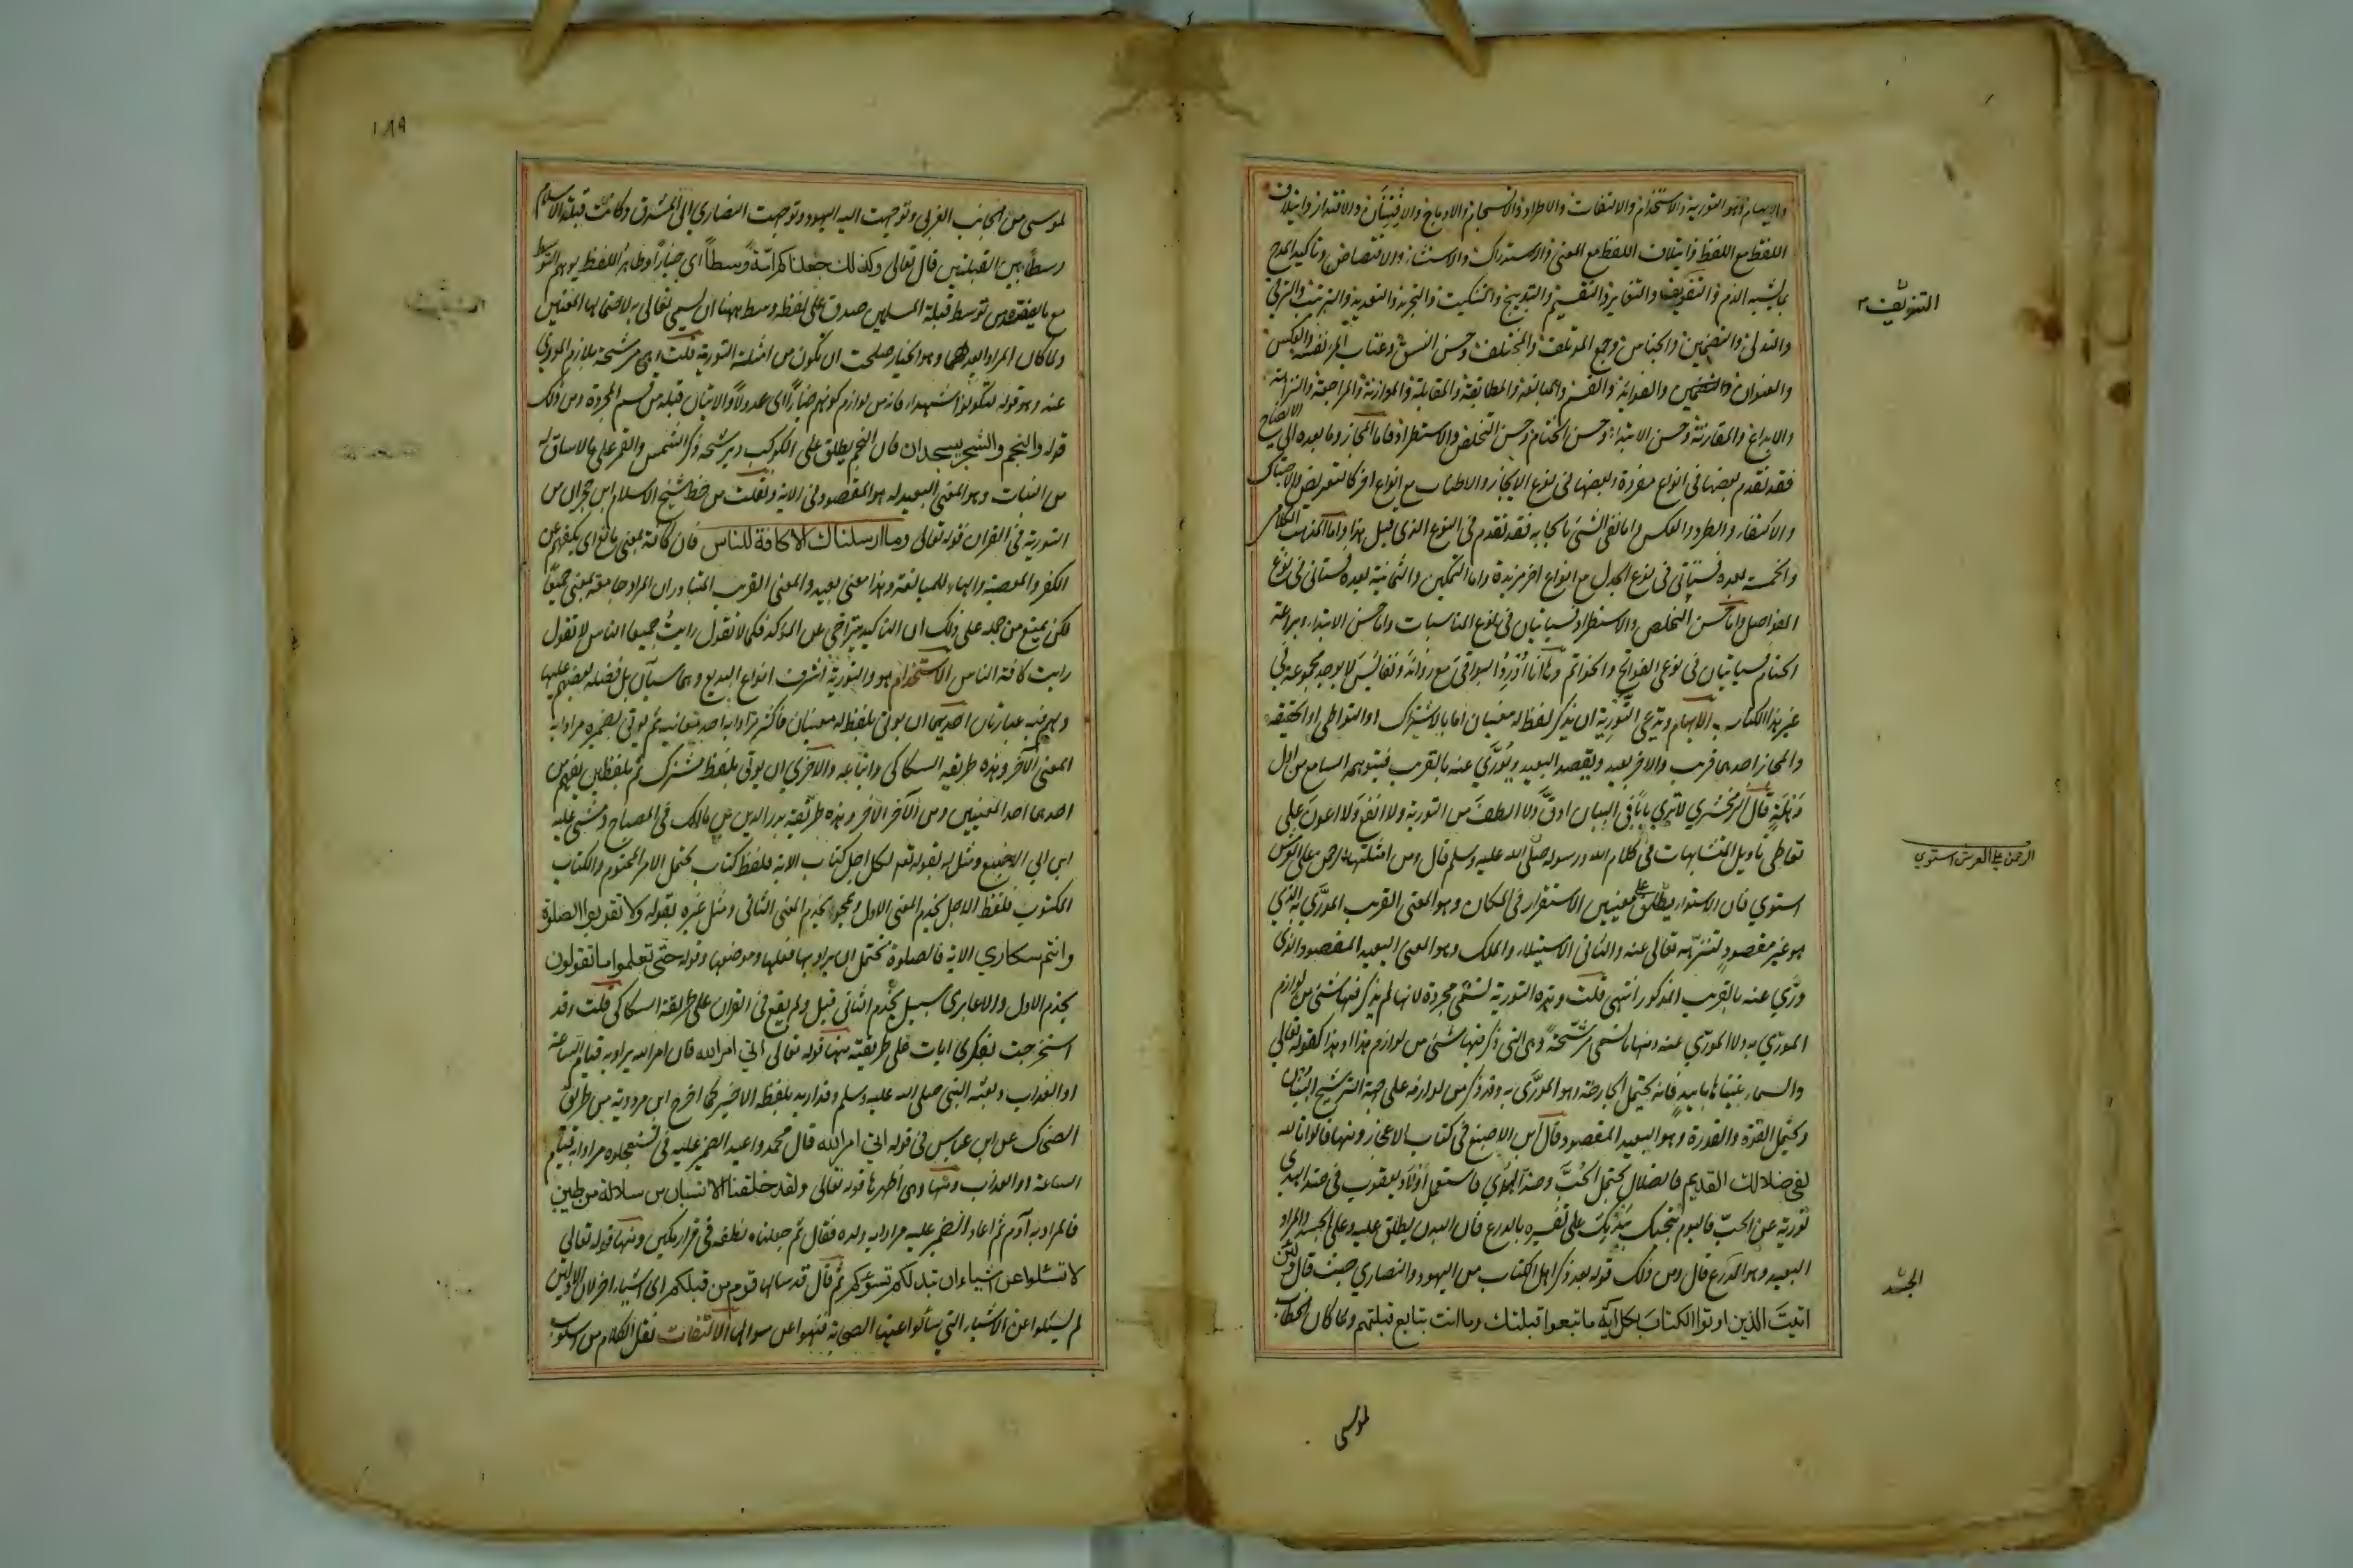 والايهام وهو التورية والاستخدام والالتفات والاطراد والانسجام والادماج والافتنان والاقتدار وايتلاف
اللفظ مع اللفظ وايتلاف اللفظ مع المعنى والاستدراك والاستثناء والاقتصاص وتاكيد المدح
بما يشبه الذم والتفويف والتغاير والتقسيم والتدبيج والتنكيت والتجريد والتعديد والترتيب والترقي
والتدلي والتضمين والجناس وجمع المؤتلف والمختلف وحسن النسق وعتاب المرء نفسه والعكس
والعنوان والفرائد والقسم والمبالغة والمطابقة والمقابلة والموازنة والمراجعة والنزاهة
والابداع والمقارنة وحسن الابتداء وحسن الختام وحسن التخلص والاستطراد فاما المجاز وما بعده الى الايضاح
فقد تقدم بعضها في انواع مفردة وبعضها في نوع الايجاز والاطناب مع انواع اخر كالتعريض والاحتباك
والاكتفاء والطرد والعكس واما نفي الشئ بايجابه فقد تقدم في النوع الذي قبل هذا واما المذهب الكلامي
والخمسة بعده فستاتي في نوع الجدل مع انواع اخر مزيدة واما التمكين والثمانية بعده فستاتي في نوع
الفواصل واما حسن التخلص والاستطراد فسياتيان في نوع المناسبات واما حسن الابتداء وبراعة
الختام فسياتيان في نوعي الفواتح والخواتم وها انا اورد البواقي مع زوائد ونفائس لا يوجد مجموعة في
غير هذا الكتاب الايهام ويدعى التورية ان يذكر لفظ له معنيان اما بالاشتراك او التواطي او الحقيقة
والمجاز احدهما قريب والاخر بعيد ويقصد البعيد ويورى عنه بالقريب فيتوهمه السامع من اول
وهلة قال الزمخشري لا ترى بابا في البيان ادق ولا الطف من التورية ولا انفع ولا اعون على
تعاطي تاويل المتشابهات في كلام الله ورسوله صلى الله عليه وسلم قال ومن امثلتها الرحمن على العرش
استوي فان الاستواء يطلق على معنيين الاستقرار في المكان وهو المعنى القريب المورى به الذي
هو غير مقصود لتنزهه تعالى عنه والثاني الاستيلاء والملك وهو المعنى البعيد المقصود الذي
ورى عنه بالقريب المذكور انتهى قلت وهذه التورية تسمى مجردة لانها لم يذكر فيها شئ من لوازم
المورى به ولا المورى عنه ومنها ما تسمى مرشحة وهي التي ذكر فيها شئ من لوازم هذا او هذا كقوله تعالى
والسماء بنيناها بايد فانه يحتمل الجارحة وهو المورى به وقد ذكر من لوازمه على جهة الترشيح البنيان
ويحتمل القوة والقدرة وهو البعيد المقصود قال ابن ابي الاصبع في كتاب الاعجاز ومنها قالوا تالله
لفي ضلالك القديم فالضلال يحتمل الحب وضد الهدى فاستعمل اولاد يعقوب في ضد الهدى
تورية عن الحب فاليوم ننجيك ببدنك على تفسيره بالدرع فان البدن يطلق عليه وعلى الجسد والمراد
البعيد وهو الدرع قال ومن ذلك قوله بعد ذكر اهل الكتاب من اليهود والنصاري حيث قال ولئن
اتيت الذين اوتوا الكتاب بكل آية ما تبعوا قبلتك وما انت بتابع قبلتهم ولما كان الخطاب
لموسى
التفويف
الرحمن على العرش استوي
الجسد
١٨٩
لموسى من الجانب الغربي وتوجهت اليه اليهود وتوجهت النصاري الى المشرق وكانت قبلة الاسلام
وسطا بين القبلتين قال تعالى وكذلك جعلناكم امة وسطا اي خيارا وظاهر اللفظ يوهم التوسط
مع ما يعضده من توسط قبلة المسلمين صدق على لفظه وسط ههنا ان يسمي تعالى به لاحتمالها المعنيين
ولما كان المراد ابعدهما وهو الخيار صلحت ان تكون من امثلة التورية قلت وهي مرشحة بلازم المورى
عنه وهو قوله لتكونوا شهداء فانه من لوازم كونهم خيارا اي عدولا والاتيان قبلها من قسم المجردة ومن ذلك
قوله والنجم والشجر يسجدان فان النجم يطلق على الكوكب ويرشحه ذكر الشمس والقمر على ما لا ساق له
من النبات وهو المعنى البعيد له وهو المقصود في الاية ونقلت من خط شيخ الاسلام ابن حجر ان من
التورية في القرآن قوله تعالى وما ارسلناك الا كافة للناس فان كافة بمعنى مانع اي تكفهم عن
الكفر والمعصية والهاء للمبالغة وهذا معنى بعيد والمعنى القريب المتبادر ان المراد جامعة بمعنى جميعا
لكن يمنع من حمله على ذلك ان التاكيد يتراخى عن المؤكد فكما لا تقول رايت جميعا الناس لا تقول
رايت كافة الناس الاستخدام هو والتورية اشرف انواع البديع وهما سيان بل فضله بعضهم عليها
ولهم فيه عبارتان احديهما ان يوتى بلفظ له معنيان فاكثر مرادا به احد معانيه ثم يوتى بضميره مرادا به
المعنى الآخر وهذه طريقة السكاكي واتباعه والآخرى ان يوتى بلفظ مشترك ثم بلفظين يفهم من
احدهما احد المعنيين ومن الآخر الآخر وهذه طريقة بدر الدين بن مالك في المصباح ومشى عليه
ابن ابي الاصبع ومثل له بقوله تعالى لكل اجل كتاب الاية فلفظ كتاب يحتمل الامد المحتوم والكتاب
المكتوب فلفظ الاجل يخدم المعنى الاول ويمحو يخدم المعنى الثاني ومثل غيره بقوله ولا تقربوا الصلوة
وانتم سكاري الاية فالصلوة يحتمل ان يراد بها فعلها وموضعها وقوله حتى تعلموا ما تقولون
يخدم الاول والا عابري سبيل يخدم الثاني قيل ولم يقع في القران على طريقة السكاكي قلت وقد
استخرجت بفكري ايات على طريقته منها قوله تعالى اتى امر الله فان امر الله يراد به قيام الساعة
او العذاب وبعثة النبي صلى الله عليه وسلم وقد اريد بلفظه الاخير كما اخرج ابن مردويه من طريق
الضحاك عن ابن عباس في قوله اتى امر الله قال محمد واعيد الضمير عليه في تستعجلوه مرادا به قيام
الساعة او العذاب ومنها وهي اظهرها قوله تعالى ولقد خلقنا الانسان من سلالة من طين
فالمراد به آدم ثم اعاد الضمير عليه مرادا به ولده فقال ثم جعلناه نطفة في قرار مكين ومنها قوله تعالى
لا تسئلوا عن اشياء ان تبد لكم تسؤكم ثم قال قد سالها قوم من قبلكم اي اشياء اخر لان الاولين
لم يسئلوا عن الاشياء التي سألوا عنها الصحابة فنهوا عن سوالها الالتفات نقل الكلام من اسلوب